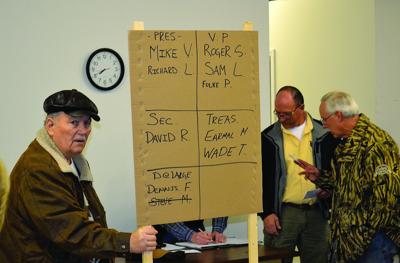 -PRES-
MIKE V.
RICHARD L
V.P
ROGER S.
SAM L
FOLKE P.
SEC.
DAVID R.
TREAS.
EARMAL N
WADE T.
D@LARGE
DENNIS F.
STEVE M.